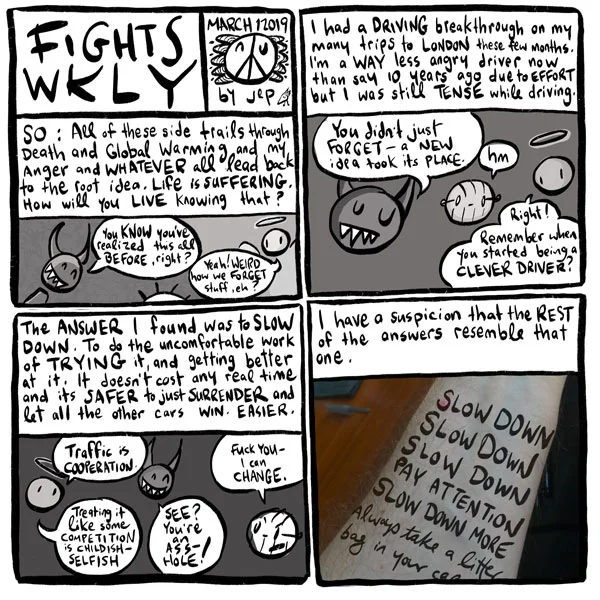 FiGHTS
WKLY
MARCH 1 2019
by JEP
SO: All of these side trails through
Death and Global Warming and my
Anger and WHATEVER all lead back
to the root idea. Life is SUFFERING.
How will you LIVE knowing that?
You KNOW you've
realized this all
BEFORE, right?
Yeah! WEIRD
how we FORGET
stuff, eh?
I had a DRIVING breakthrough on my
many trips to LONDON these few months.
I'm a WAY less angry driver now
than say 10 years ago due to EFFORT
but I was still TENSE while driving.
You didn't just
FORGET - a NEW
idea took its PLACE.
hm
Right!
Remember when
you started being a
CLEVER DRIVER?
The ANSWER I found was to SLOW
DOWN. To do the uncomfortable work
of TRYING it, and getting better
at it. It doesn't cost any real time
and its SAFER to just SURRENDER and
let all the other cars WIN. EASIER.
Traffic is
COOPERATION.
Fuck You-
I can
CHANGE.
Treating it
like some
COMPETITION
is CHILDISH-
SELFISH
SEE?
You're
an
ASS-
HOLE!
I have a suspicion that the REST
of the answers resemble that
one.
SLOW DOWN
SLOW DOWN
SLOW DOWN
PAY ATTENTION
SLOW DOWN MORE
Always take a litter
bag in your